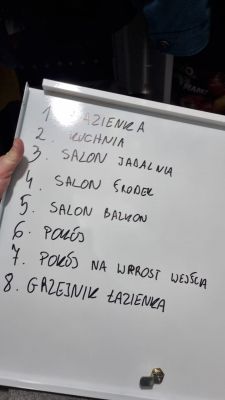 1 ŁAZIENKA
2. KUCHNIA
3. SALON JADALNIA
4. SALON ŚRODEK
5. SALON BALKON
6. POKÓJ
7. POKÓJ NA WPROST WEJŚCIA
8. GRZEJNIK ŁAZIENKA